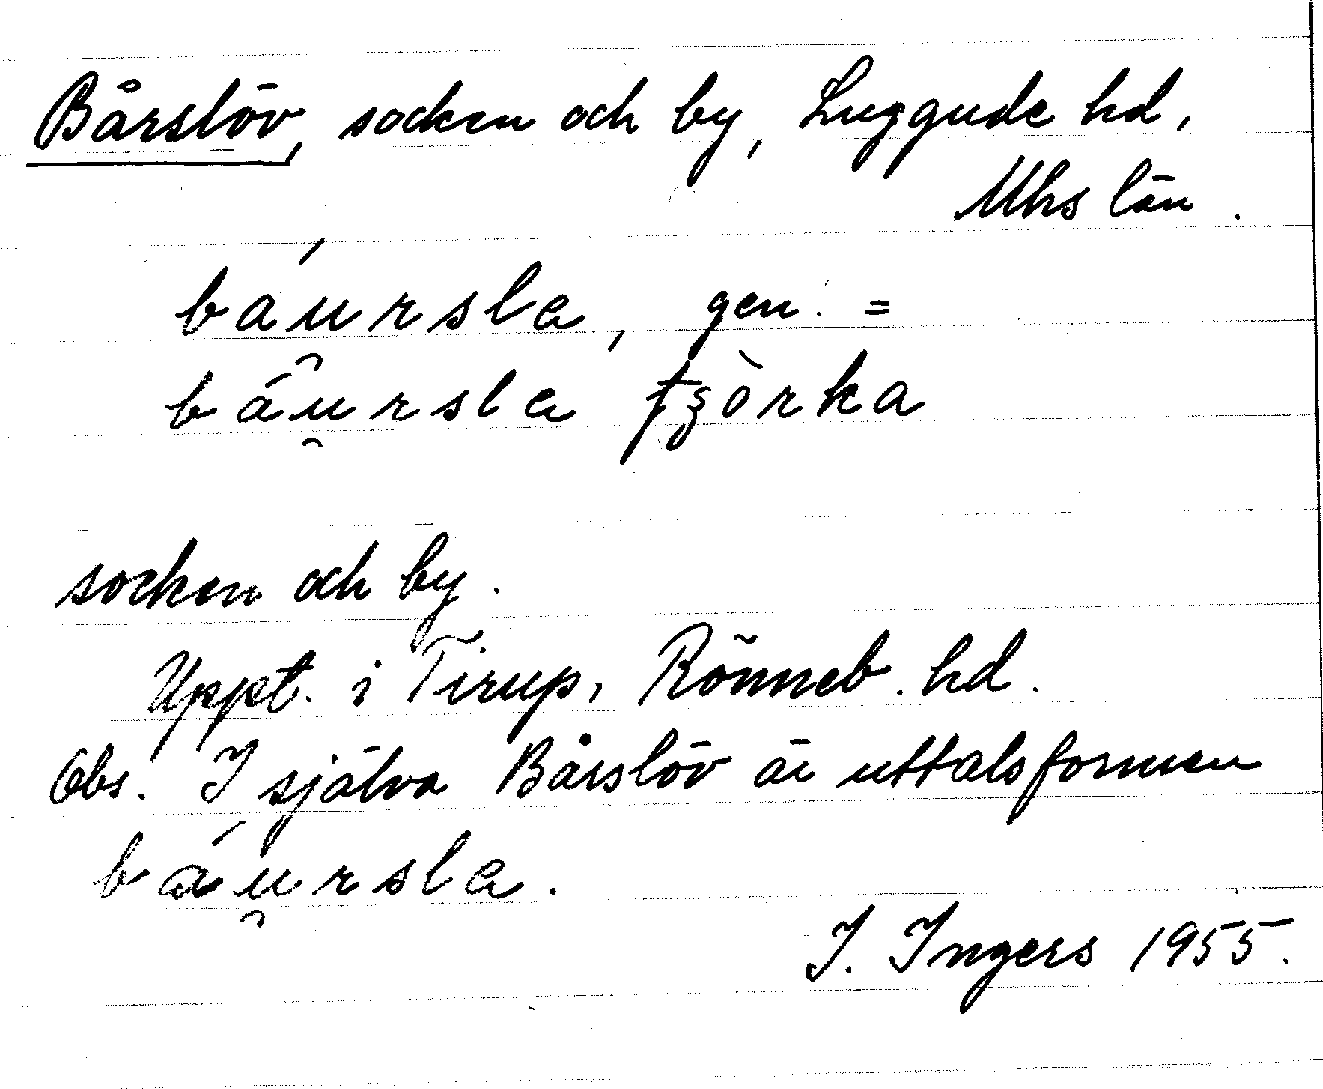 Bårslöv, socken och by, Luggude hd,
Mhs län.
báu̯rsla, gen. =
báu̯rsla tʒòrka
socken och by.
Uppt. i Tirup, Rönneb. hd.
Obs. I själva Bårslöv är uttalsformen
báu̯rsla.
I. Ingers 1955.